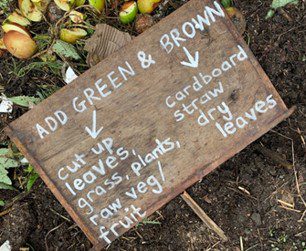 ADD GREEN & BROWN
cut up
leaves,
grass, plants,
raw veg/
fruit
cardboard
straw
dry
leaves